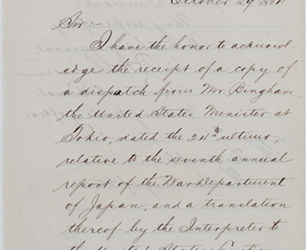 October 29
Sir:-
I have the honor to acknowl
edge the receipt of a copy of
a dispatch from Mr. Bingham,
the United States Minister at
Tokio, dated the 24th ultimo,
relative to the seventh annual
report of the War Department
of Japan, and a translation
thereof by the Interpreter to
the United States